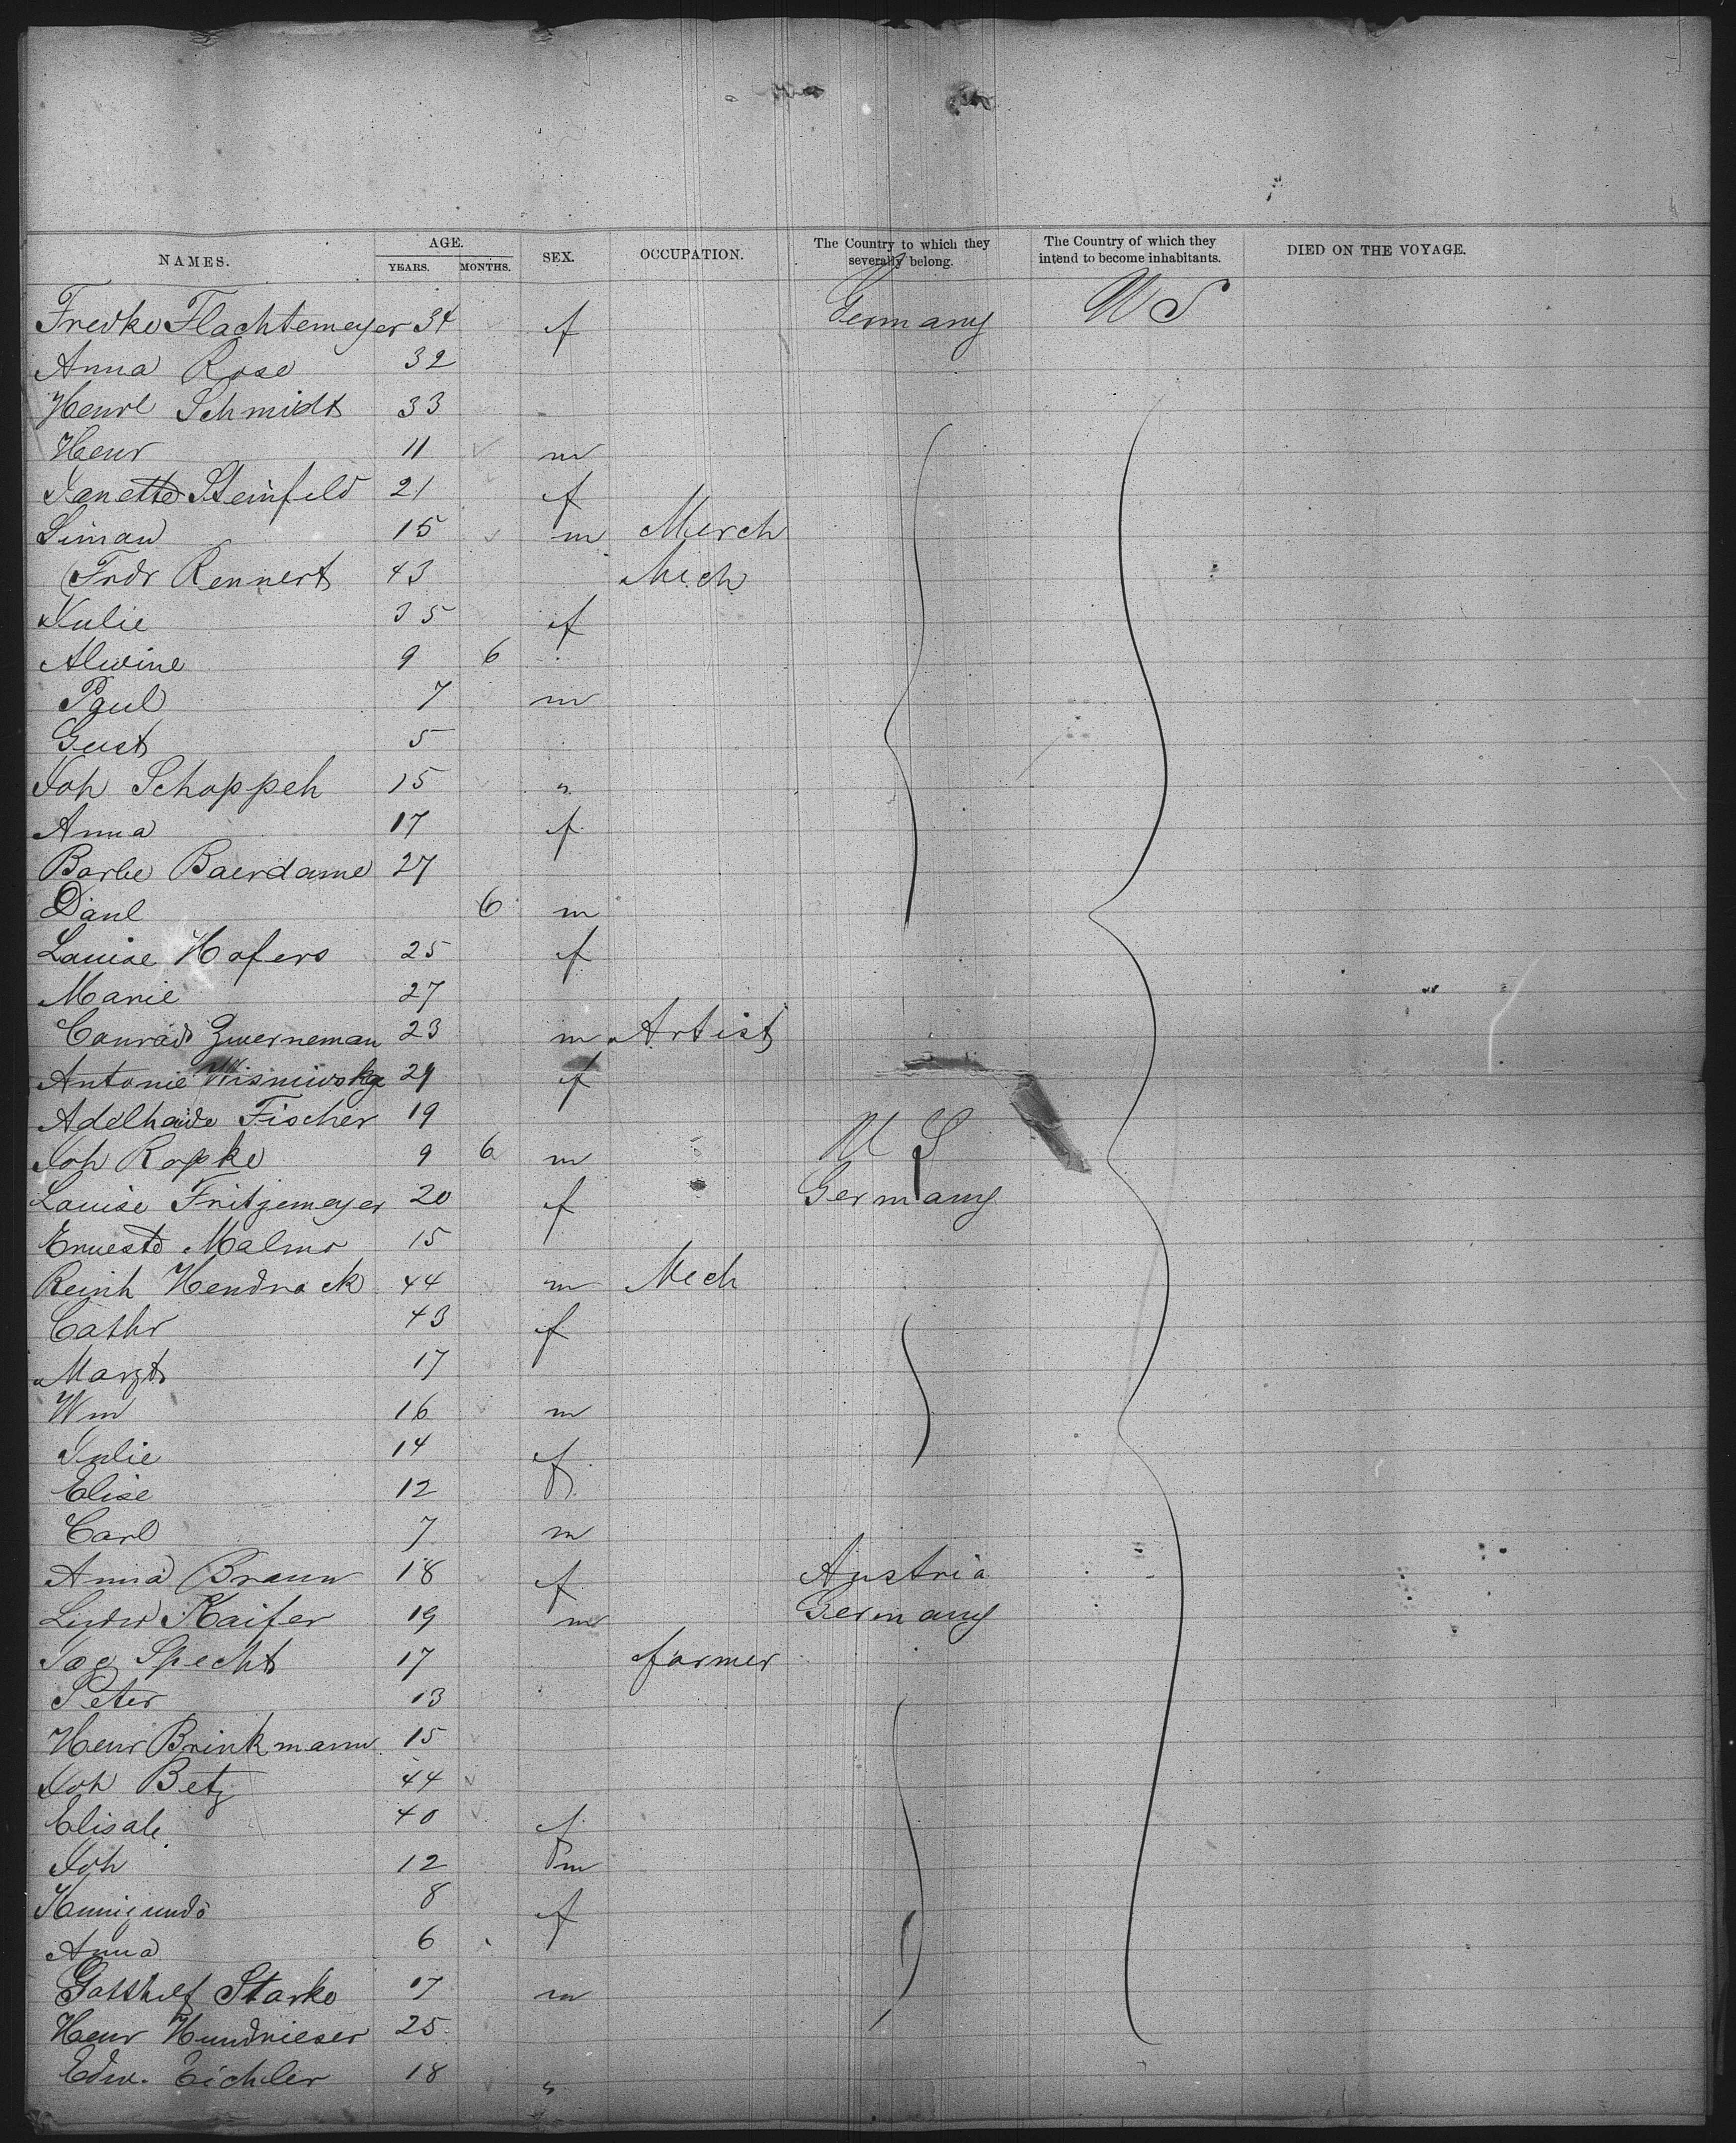 NAMES. AGE. YEARS. MONTHS. SEX. OCCUPATION. The Country to which they severally belong. The Country of which they intend to become inhabitants. DIED ON THE VOYAGE.
Fredke Flachtemeyer 34 f Germany U S
Anna Rose 32
Henrl Schmidt 33
Henr 11 m
Janette Steinfeld 21 f
Simau 15 m Merch
Frdr Rennert 43 Mech
Julie 35 f
Alwine 9 6
Paul 7 m
Gust 5
Joh Schoppeh 15 "
Anna 17 f
Barbe Baerdame 27
Danl 6 m
Louise Hofers 25 f
Marie 27
Conrad Zwerneman 23 m Artist
Antonie Wisniwska 29 f
Adelhaide Fischer 19
Joh Ropke 9 6 m U S
Louise Fritzemeyer 20 f Germany
Ernueste Malms 15
Reinh Hendrock 44 m Mech
Cathr 43 f
Margt 17
Wm 16 m
Julie 14 f
Elise 12 f
Carl 7 m
Anna Braun 18 f Austria
Ludw Kaifer 19 m Germany
Jac Specht 17 farmer
Peter 13
Henr Brinkmann 15
Joh Betz 44
Elisab. 40 f
Joh 12 m
Kunigunde 8 f
Anna 6
Gotthilf Starke 17 m
Henr Hundrieser 25
Edw. Eichler 18 "